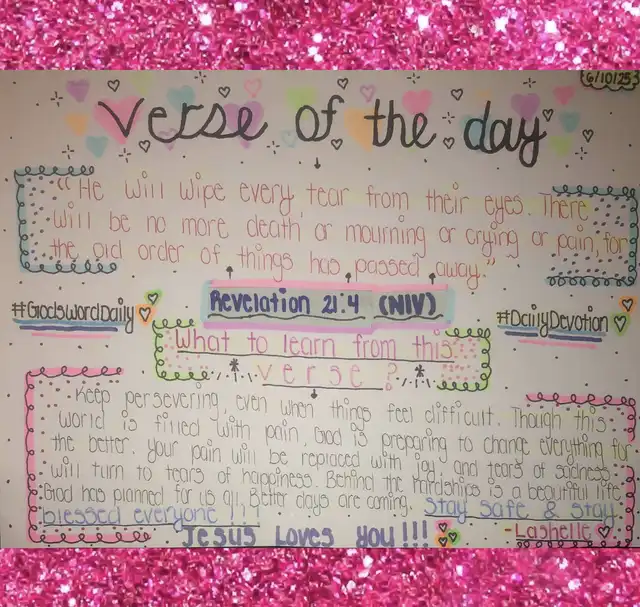 6/10/25
Verse of the day
"He will wipe every tear from their eyes. There
will be no more death, or mourning or crying or pain, for
the old order of things has passed away."
Revelation 21:4 (NIV)
#GodsWordDaily
#DailyDevotion
What to learn from this
verse?
Keep persevering, even when things feel difficult. Though this
world is filled with pain, God is preparing to change everything for
the better. Your pain will be replaced with joy, and tears of sadness
will turn to tears of happiness. Behind the hardships is a beautiful life
God has planned for us all. Better days are coming. Stay safe & stay
blessed everyone!!!
Jesus Loves You!!!
-Lashelle